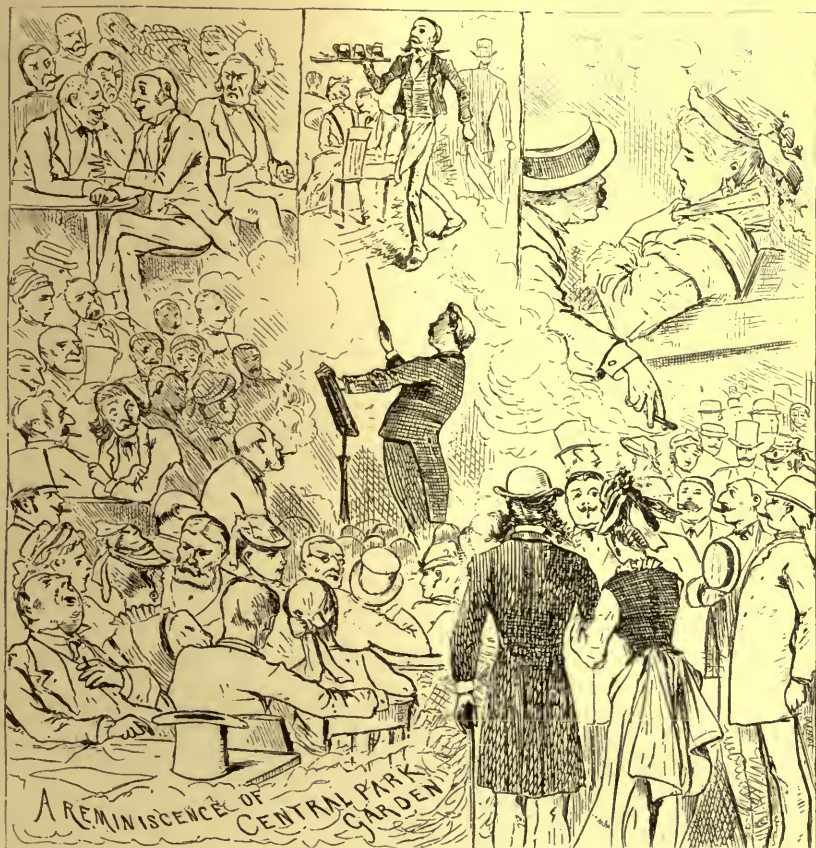 A REMINISCENCE OF
CENTRAL PARK
GARDEN